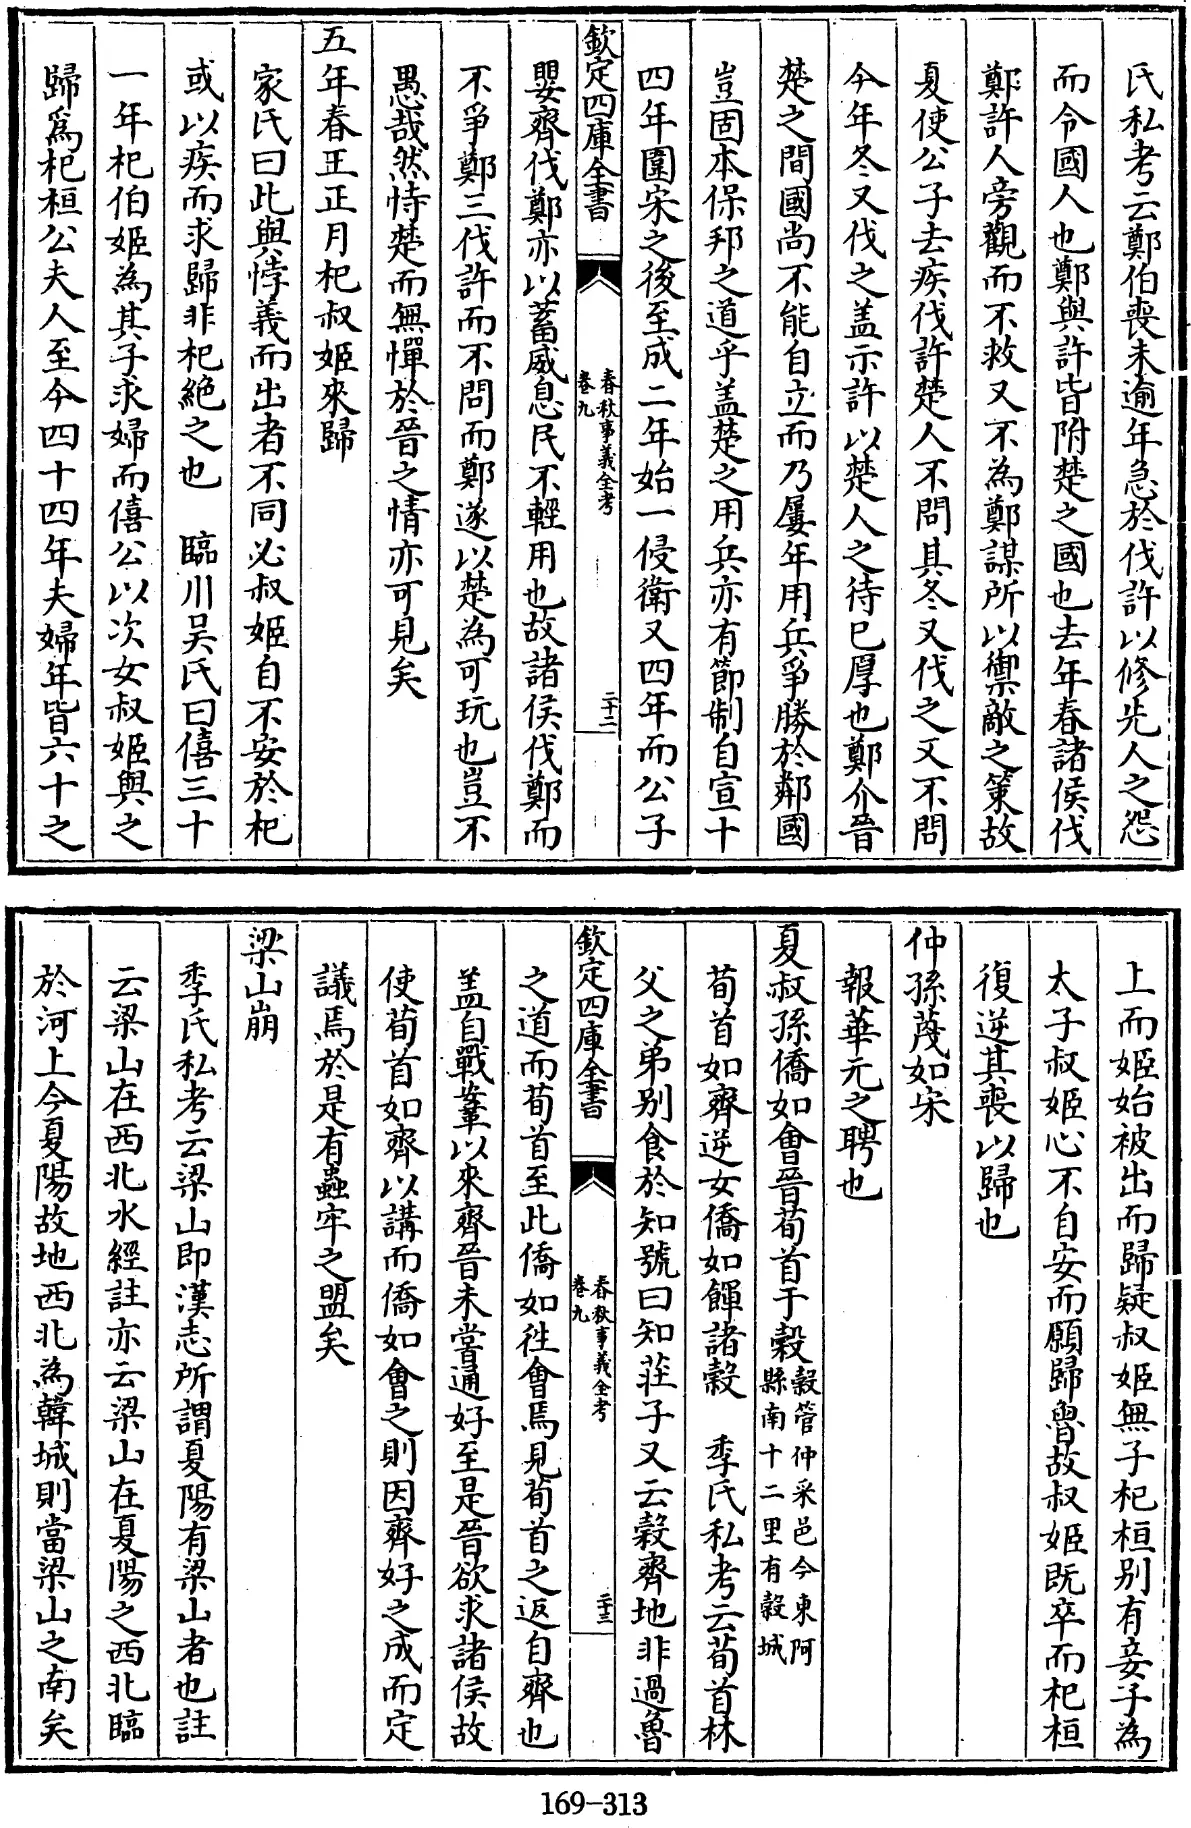 氏私考云鄭伯喪未逾年急於伐許以修先人之怨
而令國人也鄭與許皆附楚之國也去年春諸侯伐
鄭許人旁觀而不救又不為鄭謀所以禦敵之策故
夏使公子去疾伐許楚人不問其冬又伐之又不問
今年冬又伐之盖示許以楚人之待已厚也鄭介晉
楚之間國尚不能自立而乃屢年用兵爭勝於鄰國
豈固本保邦之道乎盖楚之用兵亦有節制自宣十
四年圍宋之後至成二年始一侵衛又四年而公子
欽定四庫全書
春秋事義全考
卷九
二十二
嬰齊伐鄭亦以蓄威息民不輕用也故諸侯伐鄭而
不爭鄭三伐許而不問而鄭遂以楚為可玩也豈不
愚哉然恃楚而無憚於晉之情亦可見矣
五年春王正月杞叔姬來歸
家氏曰此與悖義而出者不同必叔姬自不安於杞
或以疾而求歸非杞絶之也 臨川吴氏曰僖三十
一年杞伯姬為其子求婦而僖公以次女叔姬與之
歸爲杞桓公夫人至今四十四年夫婦年皆六十之
上而姬始被出而歸疑叔姬無子杞桓别有妾子為
太子叔姬心不自安而願歸魯故叔姬既卒而杞桓
復逆其喪以歸也
仲孫蔑如宋
報華元之聘也
夏叔孫僑如會晉荀首于穀穀管仲采邑今東阿
縣南十二里有穀城
荀首如齊逆女僑如餫諸穀 季氏私考云荀首林
父之弟别食於知號曰知莊子又云穀齊地非過魯
欽定四庫全書
春秋事義全考
卷九
二十三
之道而荀首至此僑如徃會焉見荀首之返自齊也
盖自戰鞌以來齊晉未嘗通好至是晉欲求諸侯故
使荀首如齊以講而僑如會之則因齊好之成而定
議焉於是有蟲牢之盟矣
梁山崩
季氏私考云梁山即漢志所謂夏陽有梁山者也註
云梁山在西北水經註亦云梁山在夏陽之西北臨
於河上今夏陽故地西北為韓城則當梁山之南矣
169-313